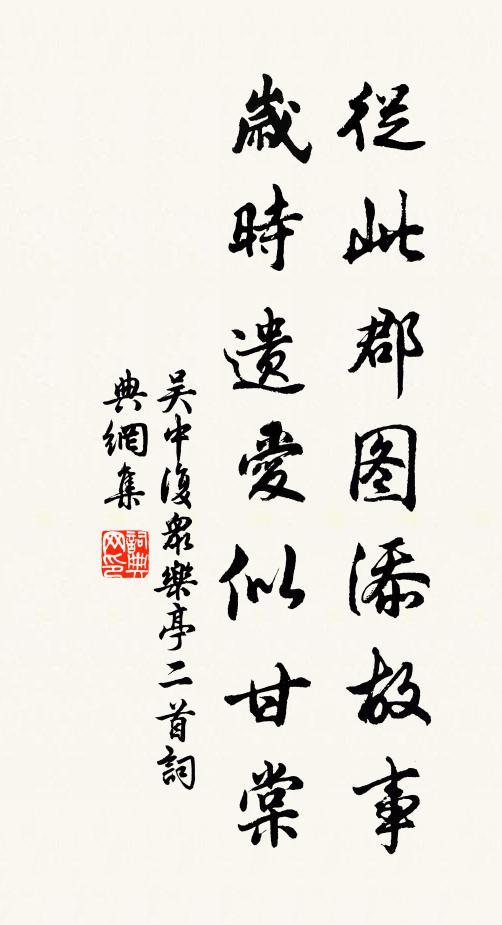 從此郡图添故事
歲時遺愛似甘棠
吴中復眾樂亭二首詞
典網集
詞典网印